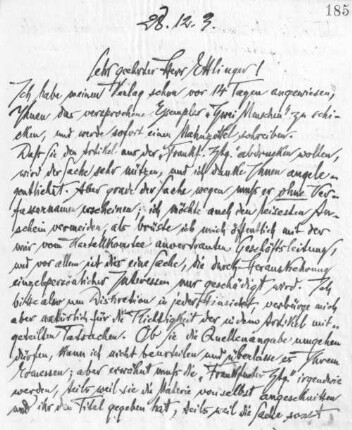 185
28.12.9.
Sehr geehrter Herr Ettlinger!
Ich habe meinen Verlag schon vor 14 Tagen angewiesen,
Ihnen das versprochene Exemplar "Zwei Menschen" zu schi-
cken, und werde sofort einen Mahnzettel schreiben.
Daß Sie den Artikel aus der "Frankf. Ztg." abdrucken wollen,
wird der Sache sehr nützen, und ich danke Ihnen angele-
gentlichst. Aber grade der Sache wegen muß er ohne Ver-
fassernamen erscheinen; ich möchte auch den leisesten An-
schein vermeiden, als brüste ich mich öffentlich mit der
mir vom Kartell anvertrauten Geschäftsleitung,
und vor allem ist dies eine Sache, die durch Herauskehrung
einzelpersönlicher Interessen nur geschädigt wird. Ich
bitte also um Diskretion in jeder Hinsicht, verbürge mich
aber natürlich für die Richtigkeit der in dem Artikel mit-
geteilten Tatsachen. Ob Sie die Quellenangabe umgehen
dürfen, kann ich nicht beurteilen und überlasse es Ihrem
Ermessen; aber erwähnt muß die "Frankfurter Ztg." irgendwie
werden, teils weil sie die Materie von selbst angeschnitten
und ihr den Titel gegeben hat, teils weil die Sache sonst